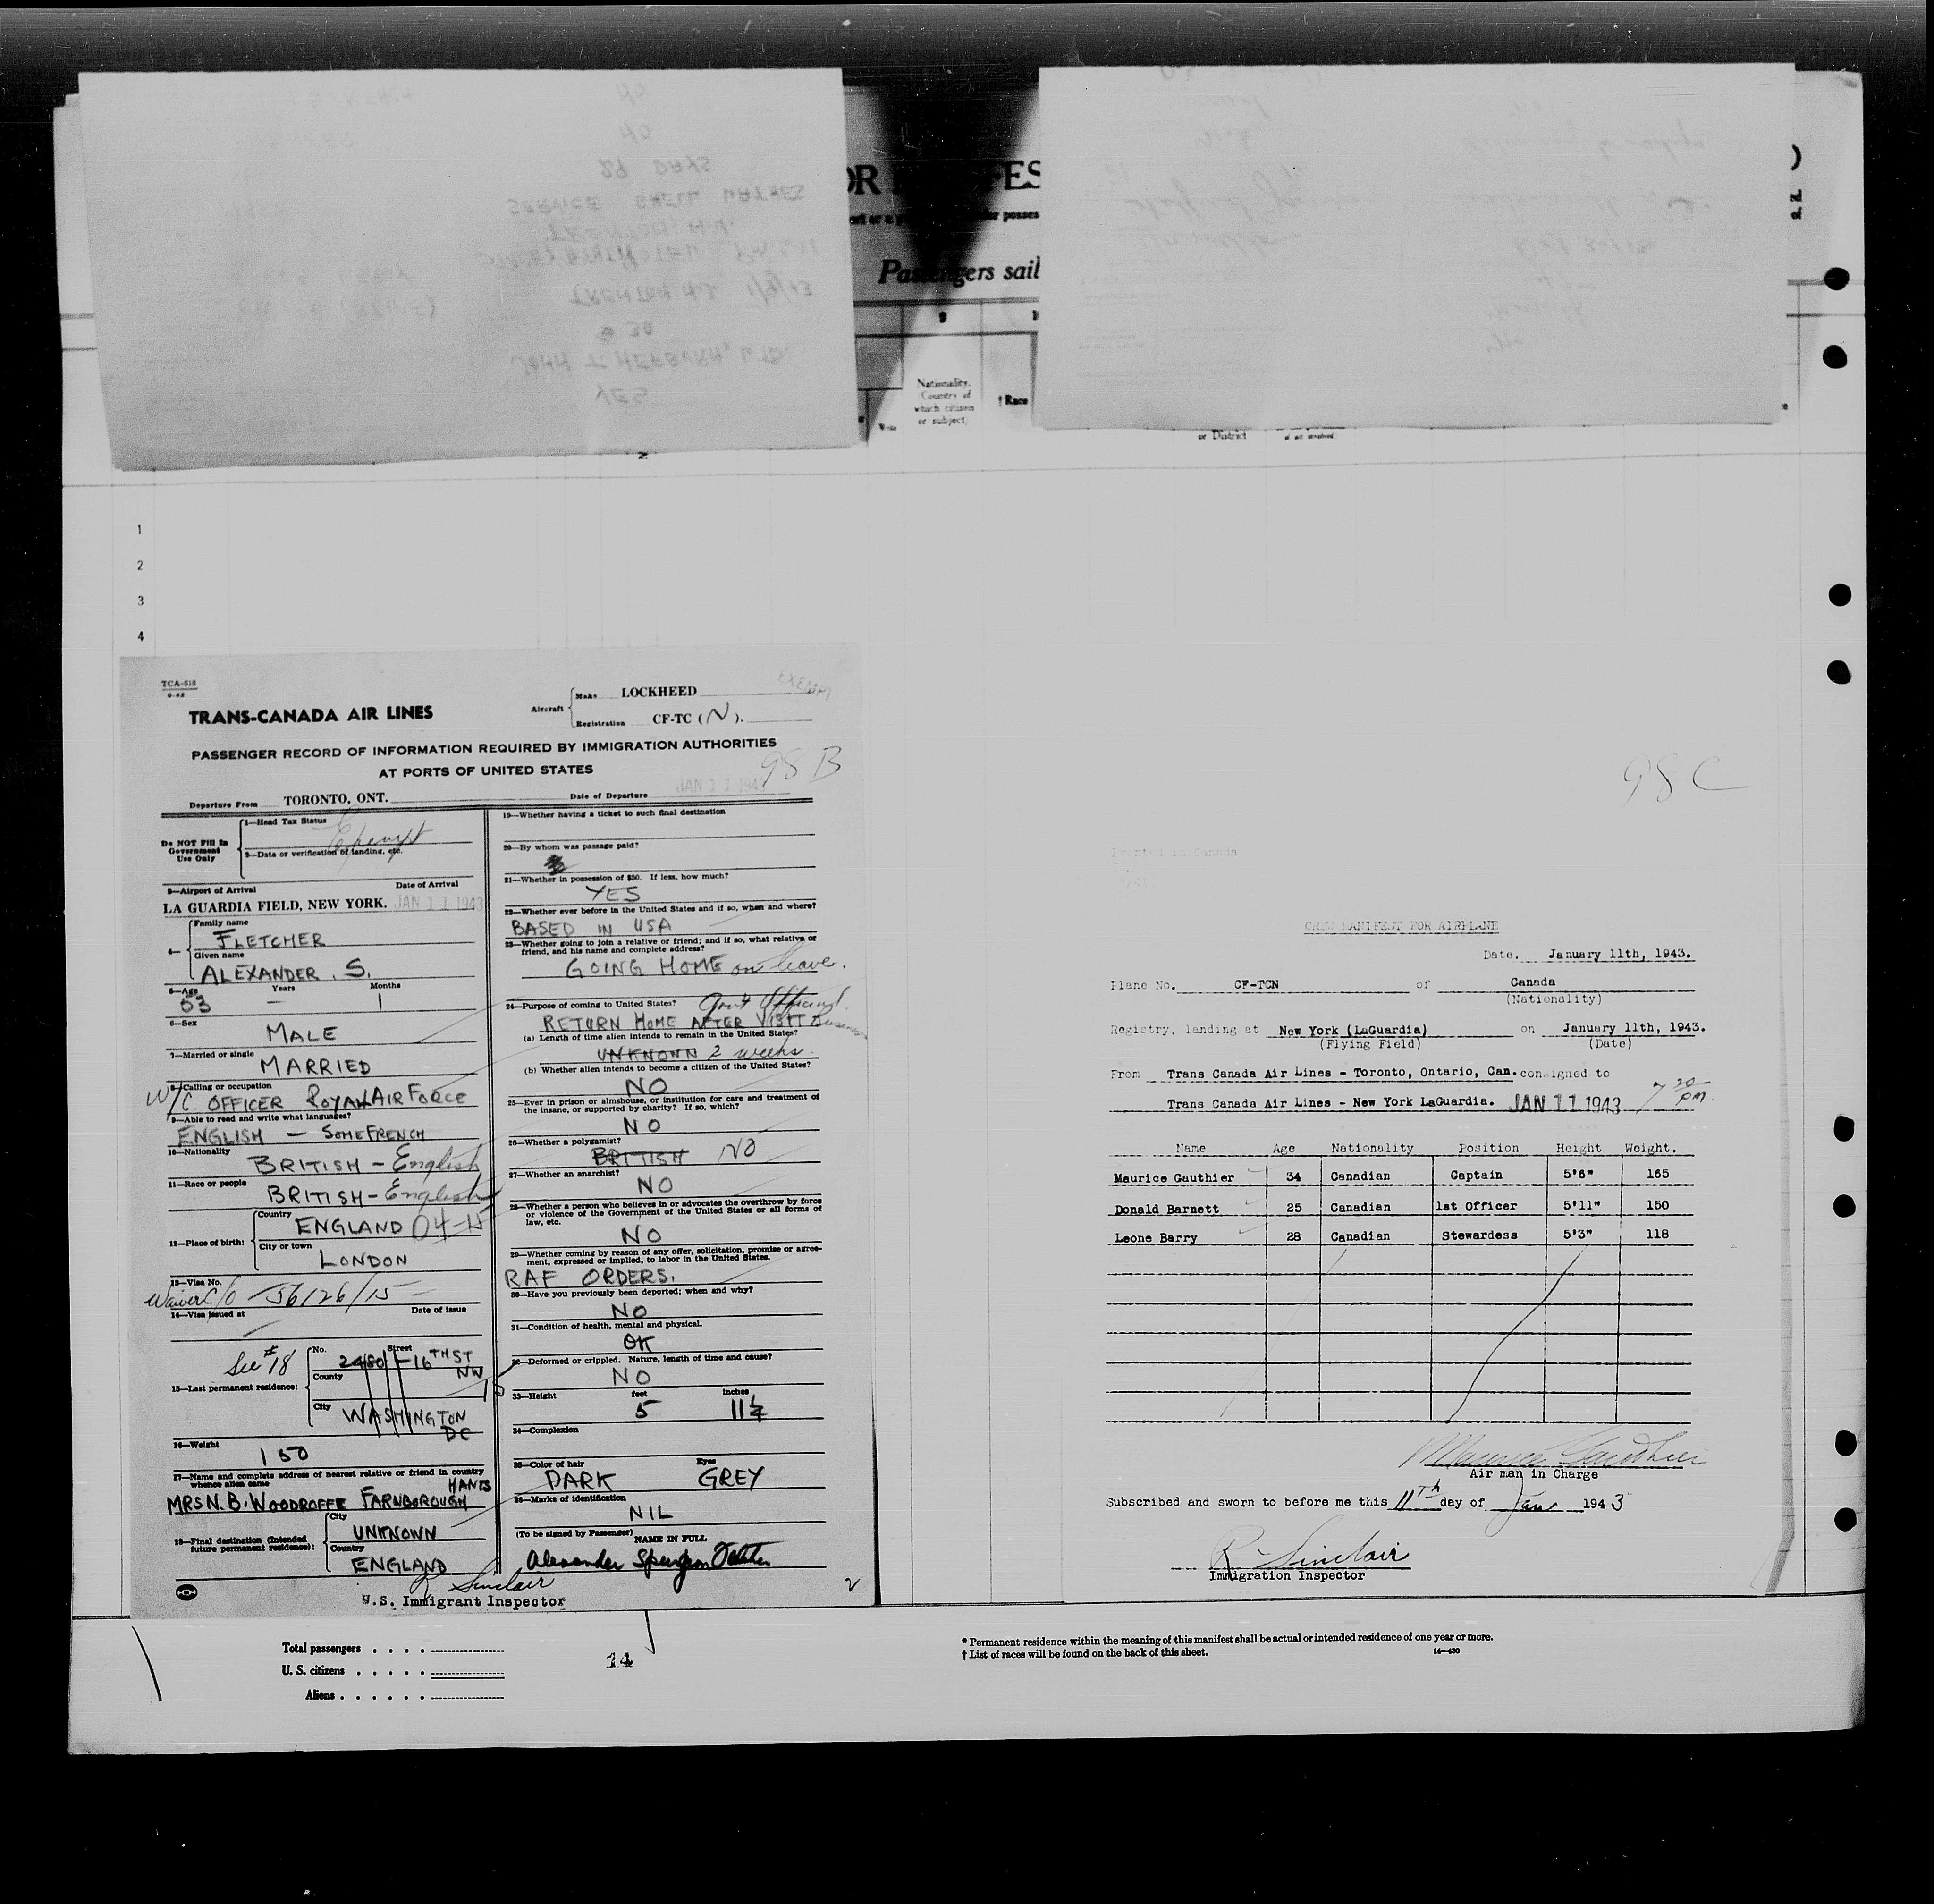 Passengers sail
9
Nationality.
(Country of
which citizen
or subject)
† Race
or District
1
2
3
4
TCA-513
TRANS-CANADA AIR LINES
Aircraft
Make LOCKHEED
Registration CF-TC (N).
EXEMPT
PASSENGER RECORD OF INFORMATION REQUIRED BY IMMIGRATION AUTHORITIES
AT PORTS OF UNITED STATES
98 B
Departure From TORONTO, ONT. Date of Departure JAN 11 1943
Do NOT Fill In
Government
Use Only
1—Head Tax Status
Exempt
2—Date or verification of landing, etc.
3—Airport of Arrival Date of Arrival
LA GUARDIA FIELD, NEW YORK. JAN 11 1943
4—
Family name
FLETCHER
Given name
ALEXANDER. S.
5—Age Years Months
53 — 1
6—Sex
MALE
7—Married or single
MARRIED
8—Calling or occupation
W/C OFFICER ROYAL AIR FORCE
9—Able to read and write what languages?
ENGLISH — SOME FRENCH
10—Nationality
BRITISH – English
11—Race or people
BRITISH – English
12—Place of birth:
Country
ENGLAND 04-15
City or town
LONDON
13—Visa No.
Waiver c/o 56126/15
14—Visa issued at Date of issue
See #18
15—Last permanent residence:
No. Street
2480 – 16TH ST
NW
County
City
WASHINGTON
DC
16—Weight
150
17—Name and complete address of nearest relative or friend in country
whence alien came
HANTS
MRS N. B. WOODROFFE FARNBOROUGH
18—Final destination (Intended
future permanent residence):
City
UNKNOWN
Country
ENGLAND
R Sinclair
U.S. Immigrant Inspector
19—Whether having a ticket to such final destination
20—By whom was passage paid?
21—Whether in possession of $50. If less, how much?
YES
22—Whether ever before in the United States and if so, when and where?
BASED IN USA
23—Whether going to join a relative or friend; and if so, what relative or
friend, and his name and complete address?
GOING HOME on leave.
24—Purpose of coming to United States? Gov't Official
RETURN HOME AFTER VISIT Business
(a) Length of time alien intends to remain in the United States?
UNKNOWN 2 weeks.
(b) Whether alien intends to become a citizen of the United States?
NO
25—Ever in prison or almshouse, or institution for care and treatment of
the insane, or supported by charity? If so, which?
NO
26—Whether a polygamist?
BRITISH NO
27—Whether an anarchist?
NO
28—Whether a person who believes in or advocates the overthrow by force
or violence of the Government of the United States or all forms of
law, etc.
NO
29—Whether coming by reason of any offer, solicitation, promise or agree-
ment, expressed or implied, to labor in the United States.
RAF ORDERS.
30—Have you previously been deported; when and why?
NO
31—Condition of health, mental and physical.
OK
32—Deformed or crippled. Nature, length of time and cause?
NO
33—Height feet inches
5 11½
34—Complexion
35—Color of hair Eyes
DARK GREY
36—Marks of identification
NIL
(To be signed by Passenger)
NAME IN FULL
Alexander Spurgeon Fletcher
2
98 C
Printed in Canada
CREW MANIFEST FOR AIRPLANE
Date. January 11th, 1943.
Plane No. CF-TCN of Canada
(Nationality)
Registry, landing at New York (LaGuardia) on January 11th, 1943.
(Flying Field) (Date)
From Trans Canada Air Lines - Toronto, Ontario, Can. consigned to
Trans Canada Air Lines - New York LaGuardia. JAN 11 1943 7 20 pm.
Name Age Nationality Position Height Weight.
Maurice Gauthier 34 Canadian Captain 5'6" 165
Donald Barnett 25 Canadian 1st Officer 5'11" 150
Leone Barry 28 Canadian Stewardess 5'3" 118
Maurice Gauthier
Air man in Charge
Subscribed and sworn to before me this 11th day of Jan 1943
R Sinclair
Immigration Inspector
Total passengers . . . .
U. S. citizens . . . . .
Aliens . . . . . .
14
* Permanent residence within the meaning of this manifest shall be actual or intended residence of one year or more.
† List of races will be found on the back of this sheet. 14—430